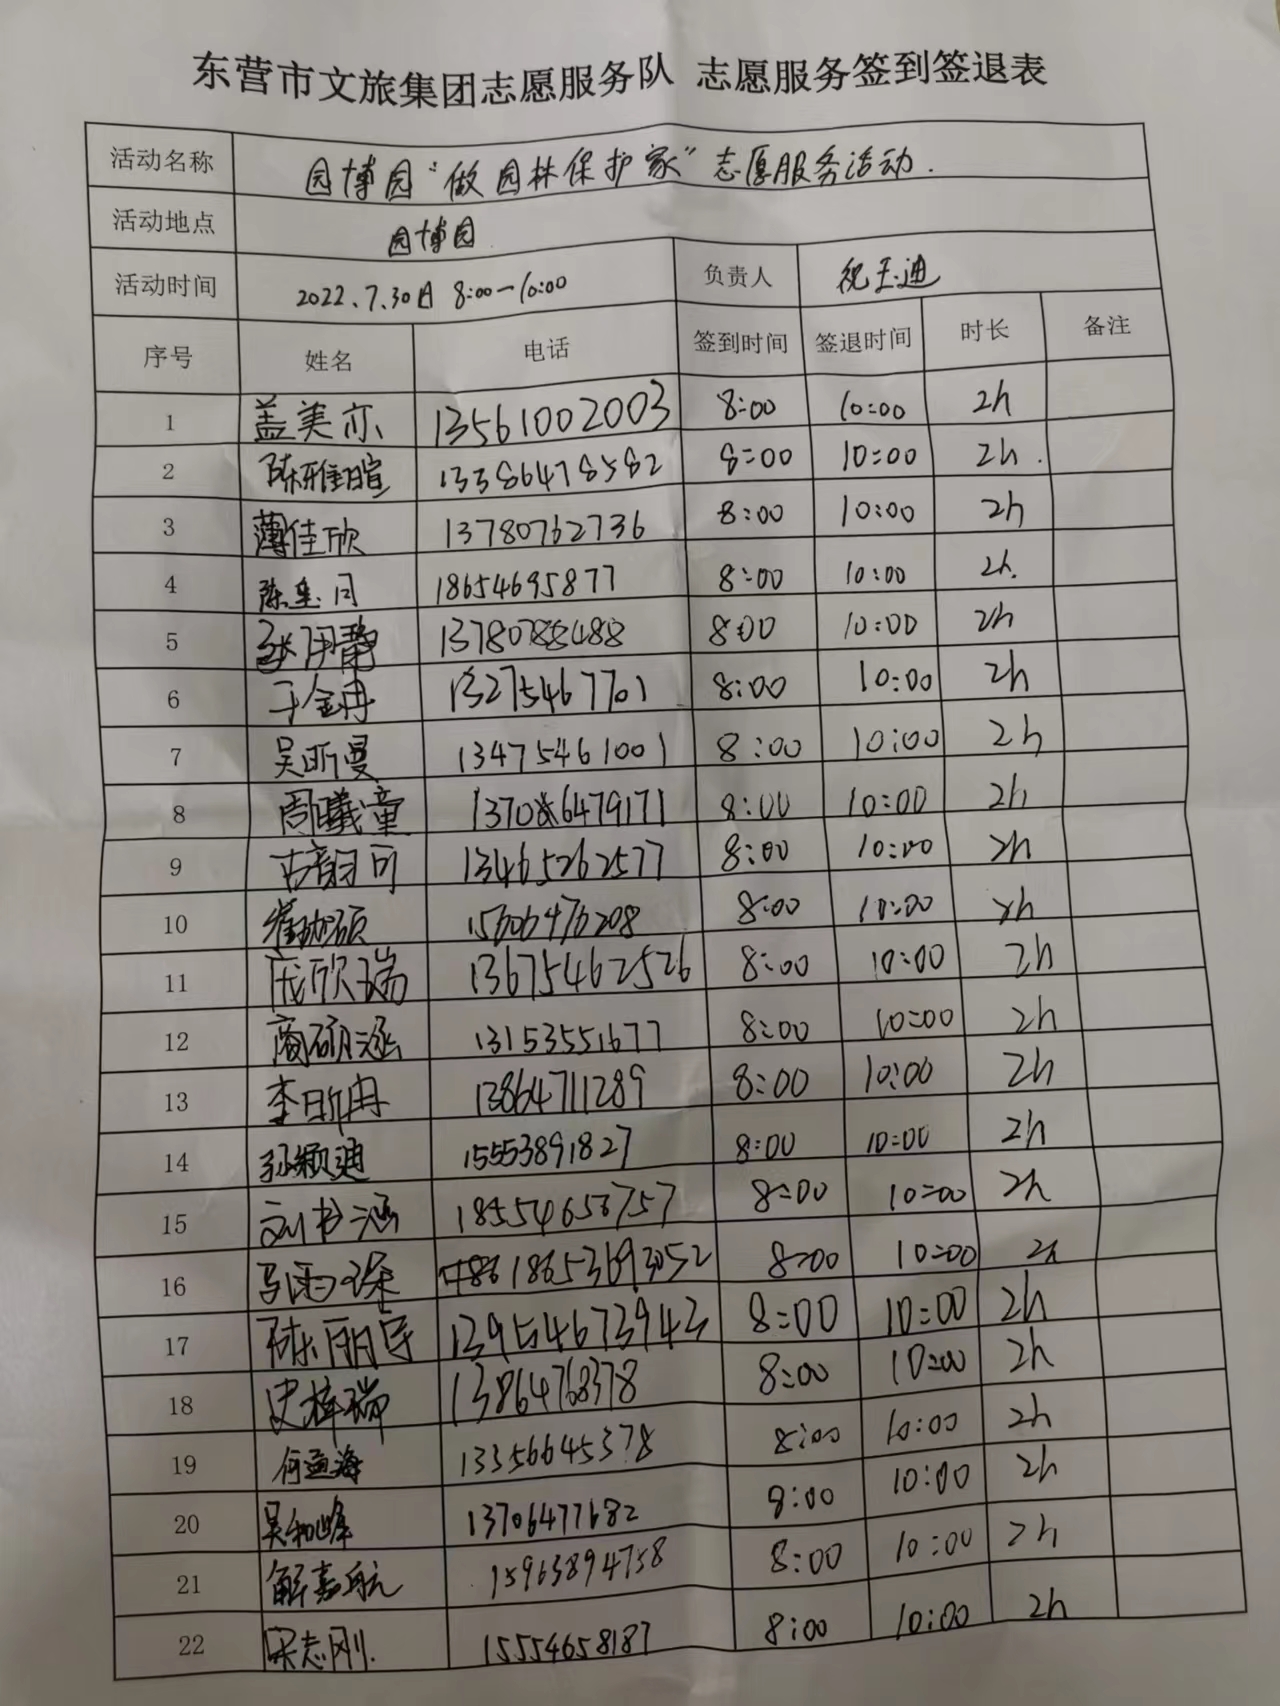 东营市文旅集团志愿服务队 志愿服务签到签退表
活动名称 园博园“做园林保护家”志愿服务活动.
活动地点 园博园
活动时间 2022.7.30日 8:00—10:00 负责人 祝玉迪
序号 姓名 电话 签到时间 签退时间 时长 备注
1 盖美亦 13561002003 8:00 10:00 2h
2 陈雅暄 13386478582 8:00 10:00 2h.
3 薄佳欣 13780762736 8:00 10:00 2h
4 18654695877 8:00 10:00 2h.
5 13780788488 8:00 10:00 2h
6 于金冉 13275467701 8:00 10:00 2h
7 吴昕曼 13475461001 8:00 10:00 2h
8 周曦童 13706479171 8:00 10:00 2h
9 古韵可 13465262577 8:00 10:00 2h
10 15606476208 8:00 10:00 2h
11 庞欣瑞 13675462526 8:00 10:00 2h
12 商硕涵 13153551677 8:00 10:00 2h
13 李昕冉 13864711289 8:00 10:00 2h
14 孙颖迪 15553891827 8:00 10:00 2h
15 刘书涵 18554658757 8:00 10:00 2h
16 马雨琛 +8618653693052 8:00 10:00 2h
17 13954673943 8:00 10:00 2h
18 史梓瑞 13864768378 8:00 10:00 2h
19 何孟海 13356645378 8:00 10:00 2h
20 吴和峰 13706477682 8:00 10:00 2h
21 解嘉航 15963894758 8:00 10:00 2h
22 宋志刚. 15554658187 8:00 10:00 2h